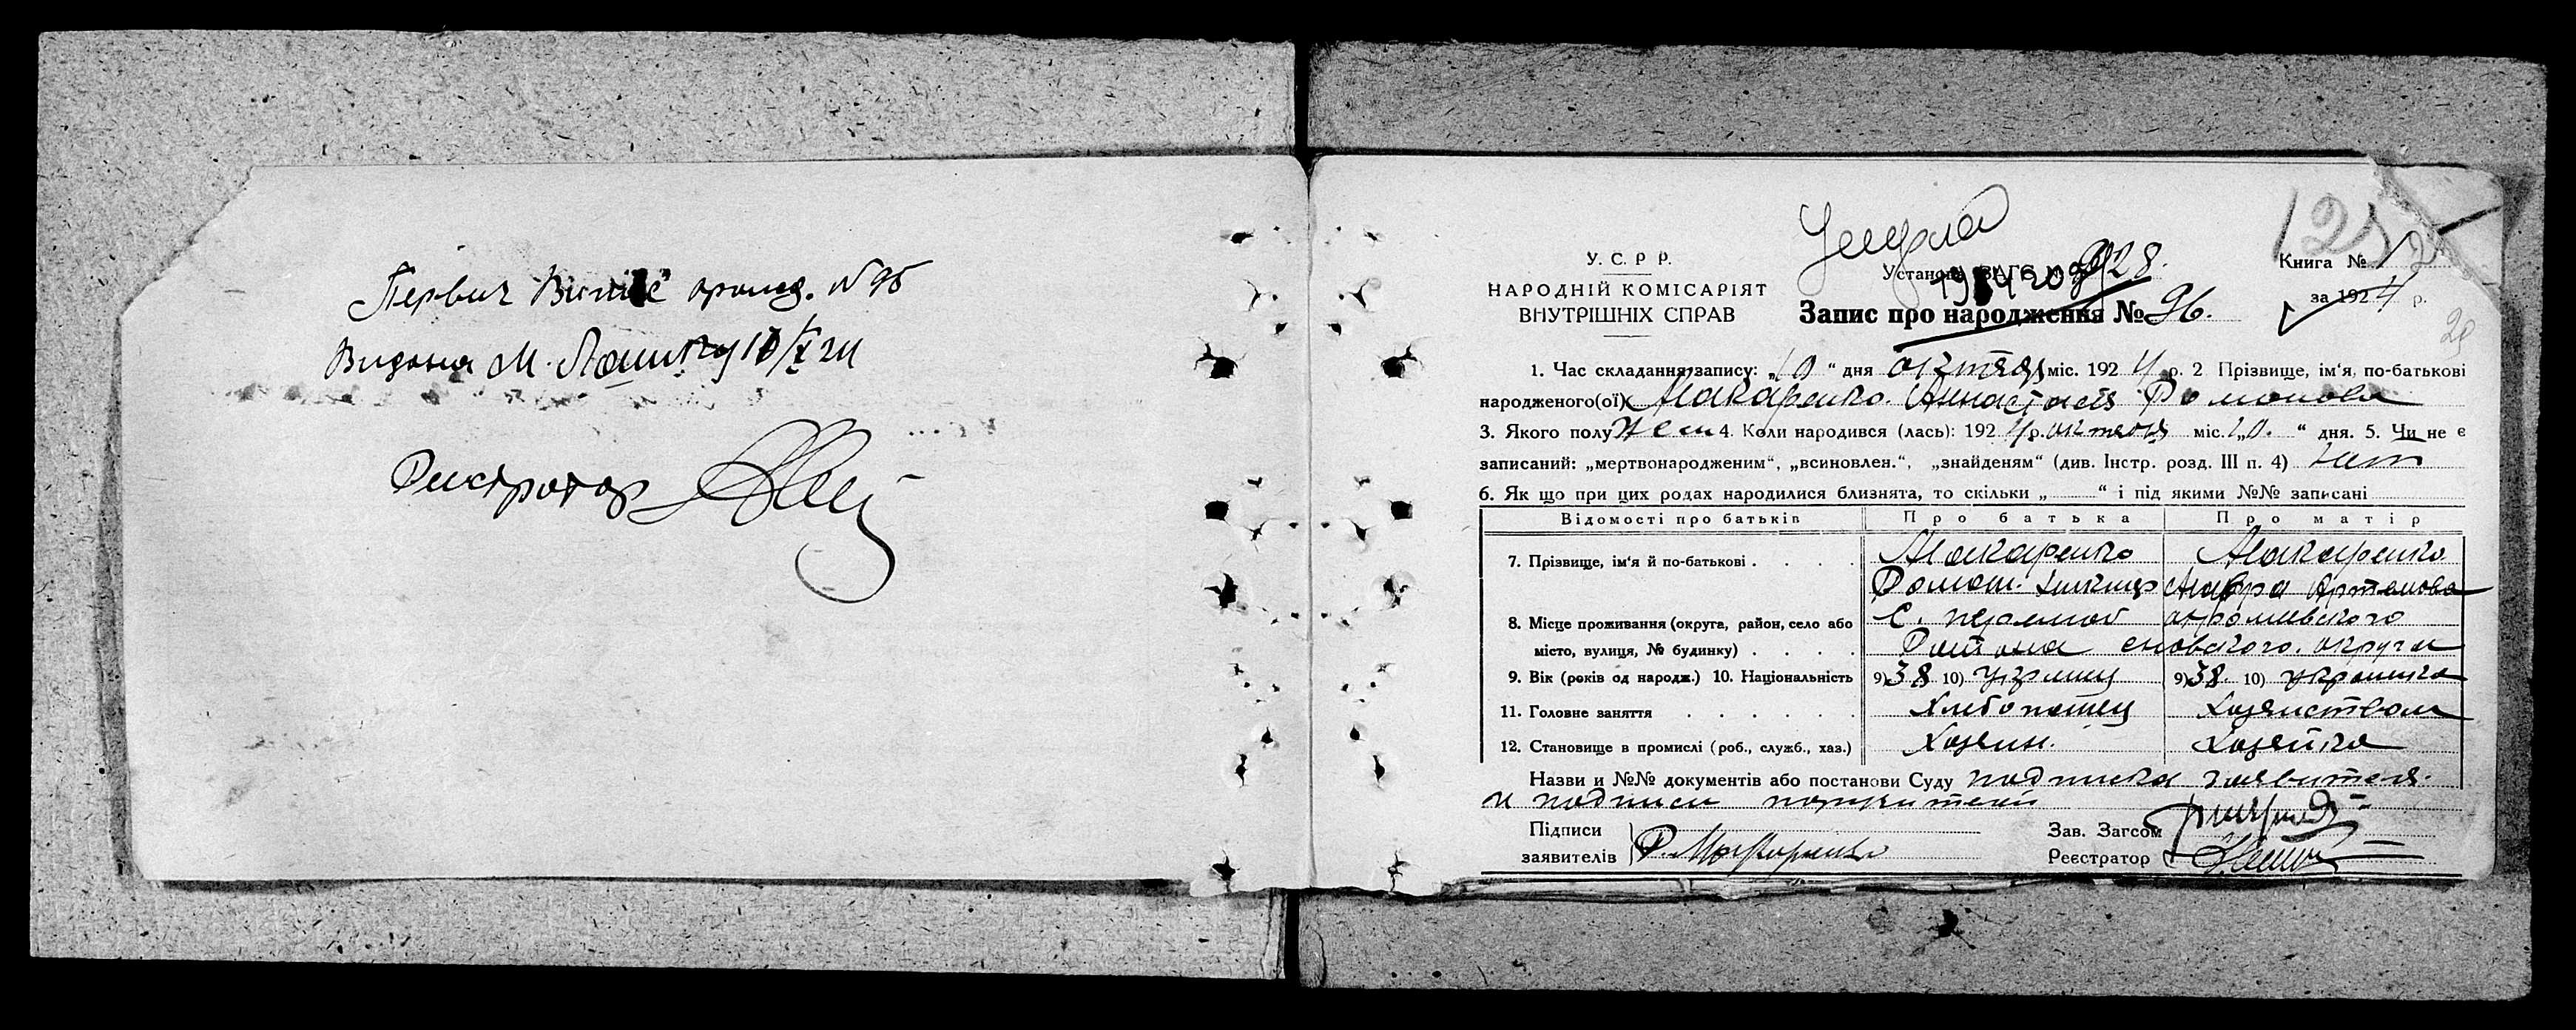 Первич Випис брошед. N 95
Видана М. Лашику 10/X 24
Реистратор
У. С. Р Р.
НАРОДНІЙ КОМІСАРІЯТ
ВНУТРІШНІХ СПРАВ
Умерла
Установа ЗАГС
1924 20 928.
Запис про народження № 96.
Книга № 1
за 1924 р.
125
1. Час складання запису: „10 “ дня октября міс. 1924 р. 2 Прізвище, ім‘я, по-батькові
народженого(ої) Макаренко. Анастасія Романова
3. Якого полу жен 4. Коли народився (лась): 1924 р. октября міс. „10. “ дня. 5. Чи не є
записаний: „мертвонародженим“, „всиновлен.“, „знайденям“ (див. Інстр. розд. III п. 4) нет
6. Як що при цих родах народилися близнята, то скільки „ “ і під якими №№ записані
Відомості про батьків Про батька Про матір
7. Прізвище, ім‘я й по-батькові . . . . Макаренко Макаренко
Роман Мавра Артемова
8. Місце проживання (округа, район, село або С.
місто, вулиця, № будинку) . . . . Района сновского. округи
9. Вік (років од народж.) 10. Національність 9) 38 10) украинец 9) 38. 10) украинка
11. Головне заняття . . . . . . Хлебопашец Хозяиством
12. Становище в промислі (роб., служб., хаз.) Хозяин. Хозяйка
Назви и №№ документів або постанови Суду подписка заявителя.
и подписи поручителей
Підписи
заявителів Р. Макаренко
Зав. Загсом
Реєстратор